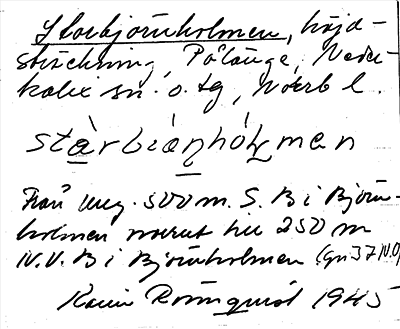 Storbjörnholmen, höjd-
sträckning, Pålänge, Neder-
kalix sn. o. tg, Norrb l.
stàrbiànhólmen
Från ung. 500 m. S. B i Björn-
holmen norrut till 250 m
N.V. B i Björnholmen (Gn 37 N.O)
Karin Rönnquist 1945